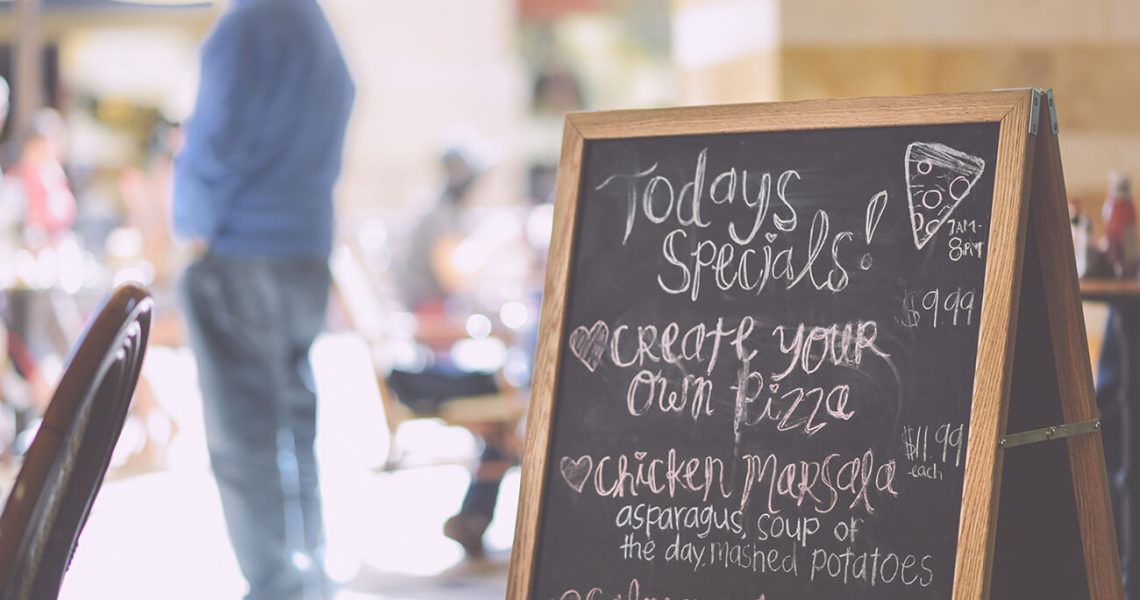 Todays
Specials!
7AM-
8PM
$9.99
create your
own pizza
$11.99
each
chicken Marsala
asparagus, soup of
the day, mashed potatoes